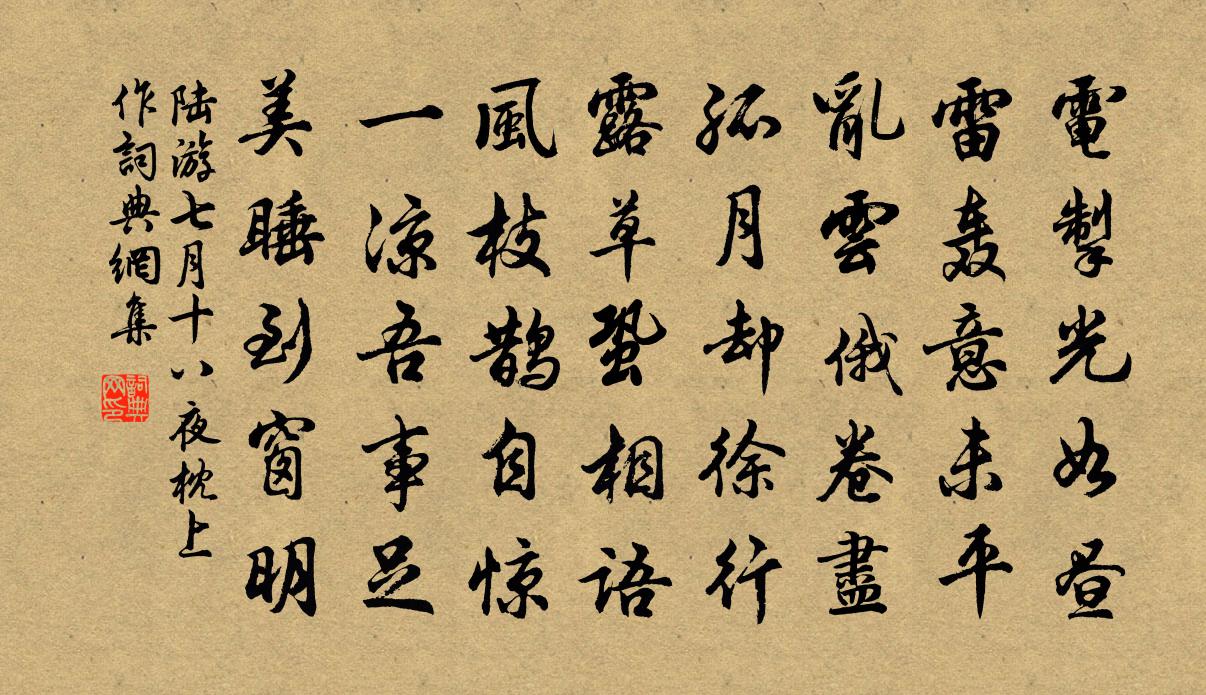 電掣光如昼
雷轰意未平
亂雲俄卷盡
孤月却徐行
露草蛩相語
風枝鵲自惊
一凉吾事足
美睡到窗明
陆游七月十八夜枕上
作詞典網集
詞典網印